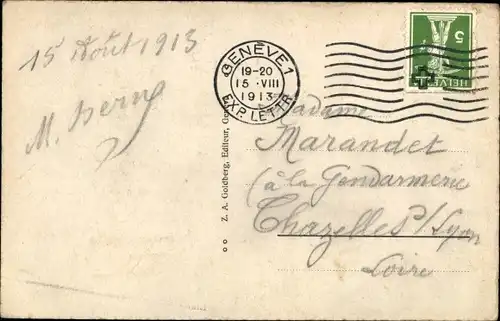 15 Août 1913
GENÈVE 1
19-20
15·VIII
1913
EXP. LETTR.
5
HELVETIA
Z. A. Goldberg, Editeur,
Madame
Marandet
(à la Gendarmerie
Chazelles s/ Lyon
Loire